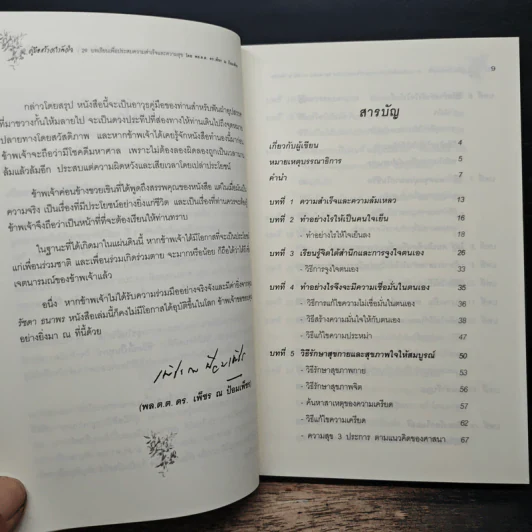 คู่มือสร้างกำลังใจ : 28 บทเรียนเพื่อประสบความสำเร็จและความสุข โดย พล.ต.ต. ดร.เพ็ชร ณ ป้อมเพ็ชร
กล่าวโดยสรุป หนังสือนี้จะเป็นอาวุธคู่มือของท่านสำหรับฟันฝ่าอุปสรรค
ที่มาขวางกั้นให้มลายไป จะเป็นดวงประทีปที่ส่องทางให้ท่านเดินไปถึงจุดหมาย
ปลายทางโดยสวัสดิภาพ และหากข้าพเจ้าได้เคยรู้จักหนังสือทำนองนี้มาก่อน
ข้าพเจ้าจะถือว่ามีโชคดีมหาศาล เพราะไม่ต้องลองผิดลองถูกเป็นเวลานาน
ล้มแล้วล้มอีก ประสบแต่ความผิดหวังและเสียเวลาโดยเปล่าประโยชน์
ข้าพเจ้าค่อนข้างขวยเขินที่ได้พูดถึงสรรพคุณของหนังสือ แต่ในเมื่อมันเป็น
ความจริง เป็นเรื่องที่มีประโยชน์อย่างยิ่งแก่ชีวิต และเป็นเรื่องที่ท่านควรจะรู้
ข้าพเจ้าจึงถือว่าเป็นหน้าที่ที่จะต้องเรียนให้ท่านทราบ
ในฐานะที่ได้เกิดมาในแผ่นดินนี้ หากข้าพเจ้าได้มีโอกาสที่จะเป็นประโยชน์
แก่เพื่อนร่วมชาติ และเพื่อนร่วมเกิดร่วมตาย จะมากหรือน้อย ก็ถือได้ว่าได้
เจตนารมณ์ของข้าพเจ้าแล้ว
อนึ่ง หากข้าพเจ้าไม่ได้รับความร่วมมืออย่างจริงจังและมีค่ายิ่งจาก
รัชดา ธนาพร หนังสือเล่มนี้ก็คงไม่มีโอกาสได้อุบัติขึ้นในโลก ข้าพเจ้าขอขอบคุณ
อย่างยิ่งมา ณ ที่นี้ด้วย
(พล.ต.ต. ดร. เพ็ชร ณ ป้อมเพ็ชร)
9
สารบัญ
เกี่ยวกับผู้เขียน 4
หมายเหตุบรรณาธิการ 5
คำนำ 7
บทที่ 1 ความสำเร็จและความล้มเหลว 13
บทที่ 2 ทำอย่างไรให้เป็นคนใจเย็น 16
- ทำอย่างไรให้ใจเย็นลง 18
บทที่ 3 เรียนรู้จิตใต้สำนึกและการจูงใจตนเอง 26
- วิธีการจูงใจตนเอง 33
บทที่ 4 ทำอย่างไรจึงจะมีความเชื่อมั่นในตนเอง 35
- วิธีการแก้ไขความไม่เชื่อมั่นในตนเอง 36
- วิธีสร้างความมั่นใจให้กับตนเอง 38
- วิธีแก้ไขความประหม่า 47
บทที่ 5 วิธีรักษาสุขกายและสุขภาพใจให้สมบูรณ์ 50
- วิธีรักษาสุขภาพกาย 52
- วิธีรักษาสุขภาพจิต 56
- ค้นหาสาเหตุของความเครียด 57
- วิธีแก้ไขความเครียด 62
- ความสุข 3 ประการ ตามแนวคิดของศาสนา 67